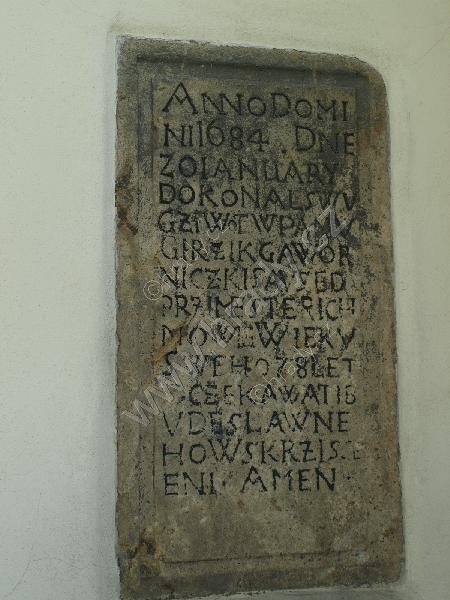 ANNO DOMI
NI 1684 DNE
20 IANUARY
DOKONAL SWU
GZIWOT W PANU
GIRZIK GAWOR
NICZKI
PRZI MESTE RICH
NOWE WIEKU
SWEHO 78 LET
OCZEKAWA TIB
UDE SLAWNE
HO W SKRZIS
ENI · AMEN ·